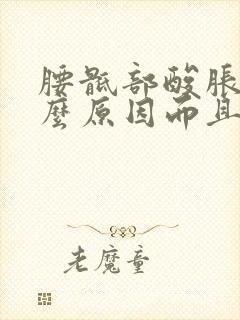 腰骶部酸胀
麼原因而且
老魔童